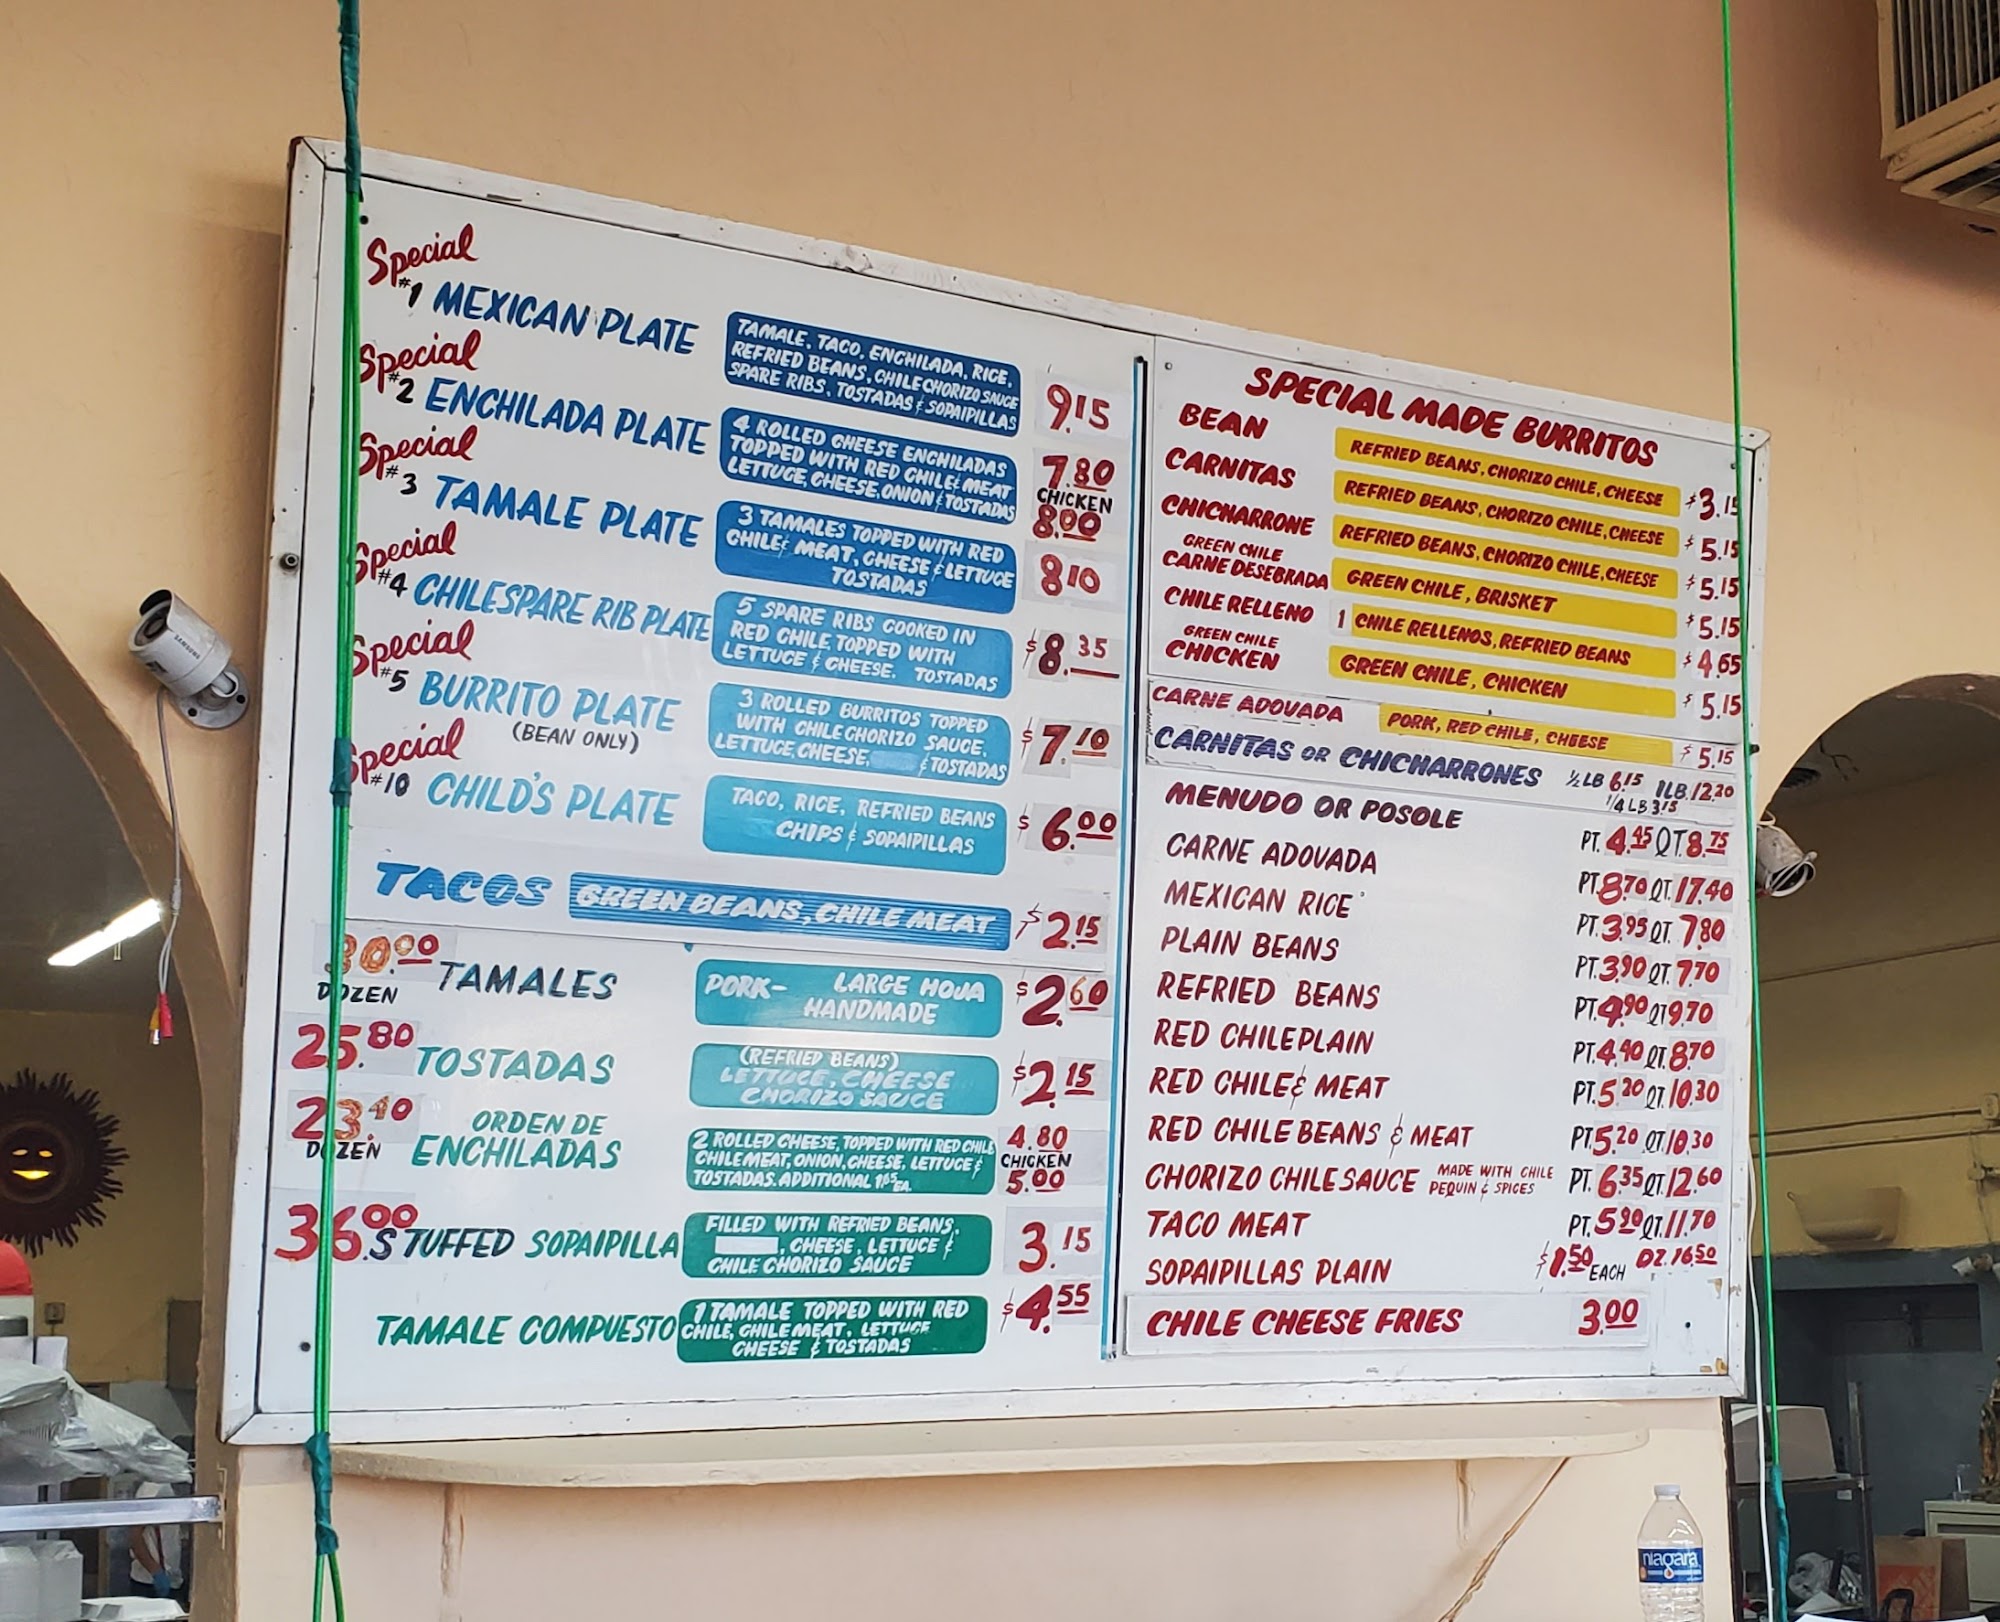 Special
#1 MEXICAN PLATE
TAMALE, TACO, ENCHILADA, RICE,
REFRIED BEANS, CHILE CHORIZO SAUCE
SPARE RIBS, TOSTADAS & SOPAIPILLAS
9.15
Special
#2 ENCHILADA PLATE
4 ROLLED CHEESE ENCHILADAS
TOPPED WITH RED CHILE & MEAT
LETTUCE, CHEESE, ONION & TOSTADAS
7.80
CHICKEN
8.00
Special
#3 TAMALE PLATE
3 TAMALES TOPPED WITH RED
CHILE & MEAT, CHEESE & LETTUCE
TOSTADAS
8.10
Special
#4 CHILE SPARE RIB PLATE
5 SPARE RIBS COOKED IN
RED CHILE, TOPPED WITH
LETTUCE & CHEESE. TOSTADAS
$8.35
Special
#5 BURRITO PLATE
(BEAN ONLY)
3 ROLLED BURRITOS TOPPED
WITH CHILE CHORIZO SAUCE,
LETTUCE, CHEESE, & TOSTADAS
$7.10
Special
#10 CHILD'S PLATE
TACO, RICE, REFRIED BEANS
CHIPS & SOPAIPILLAS
$6.00
TACOS GREEN BEANS, CHILE MEAT $2.15
30.00
DOZEN
TAMALES
PORK- LARGE HOJA
HANDMADE
$2.60
25.80
TOSTADAS
(REFRIED BEANS)
LETTUCE, CHEESE
CHORIZO SAUCE
$2.15
23.40
DOZEN
ORDEN DE
ENCHILADAS
2 ROLLED CHEESE, TOPPED WITH RED CHILE
CHILE MEAT, ONION, CHEESE, LETTUCE &
TOSTADAS. ADDITIONAL 1.65 EA.
4.80
CHICKEN
5.00
36.00
STUFFED SOPAIPILLA
FILLED WITH REFRIED BEANS,
, CHEESE, LETTUCE &
CHILE CHORIZO SAUCE
3.15
TAMALE COMPUESTO
1 TAMALE TOPPED WITH RED
CHILE, CHILE MEAT, LETTUCE
CHEESE & TOSTADAS
$4.55
SPECIAL MADE BURRITOS
BEAN REFRIED BEANS, CHORIZO CHILE, CHEESE $3.15
CARNITAS REFRIED BEANS, CHORIZO CHILE, CHEESE $5.15
CHICHARRONE REFRIED BEANS, CHORIZO CHILE, CHEESE $5.15
GREEN CHILE
CARNE DESEBRADA GREEN CHILE, BRISKET $5.15
CHILE RELLENO 1 CHILE RELLENOS, REFRIED BEANS $4.65
GREEN CHILE
CHICKEN GREEN CHILE, CHICKEN $5.15
CARNE ADOVADA PORK, RED CHILE, CHEESE $5.15
CARNITAS OR CHICHARRONES ½ LB 6.15 1 LB. 12.20
1/4 LB 3.15
MENUDO OR POSOLE PT. 4.45 QT. 8.75
CARNE ADOVADA PT. 8.70 QT. 17.40
MEXICAN RICE PT. 3.95 QT. 7.80
PLAIN BEANS PT. 3.90 QT. 7.70
REFRIED BEANS PT. 4.90 QT 9.70
RED CHILE PLAIN PT. 4.40 QT. 8.70
RED CHILE & MEAT PT. 5.20 QT. 10.30
RED CHILE BEANS & MEAT PT. 5.20 QT. 10.30
CHORIZO CHILE SAUCE MADE WITH CHILE PEQUIN & SPICES PT. 6.35 QT. 12.60
TACO MEAT PT. 5.90 QT. 11.70
SOPAIPILLAS PLAIN $1.50 EACH DZ. 16.50
CHILE CHEESE FRIES 3.00
SAMSUNG
niagara